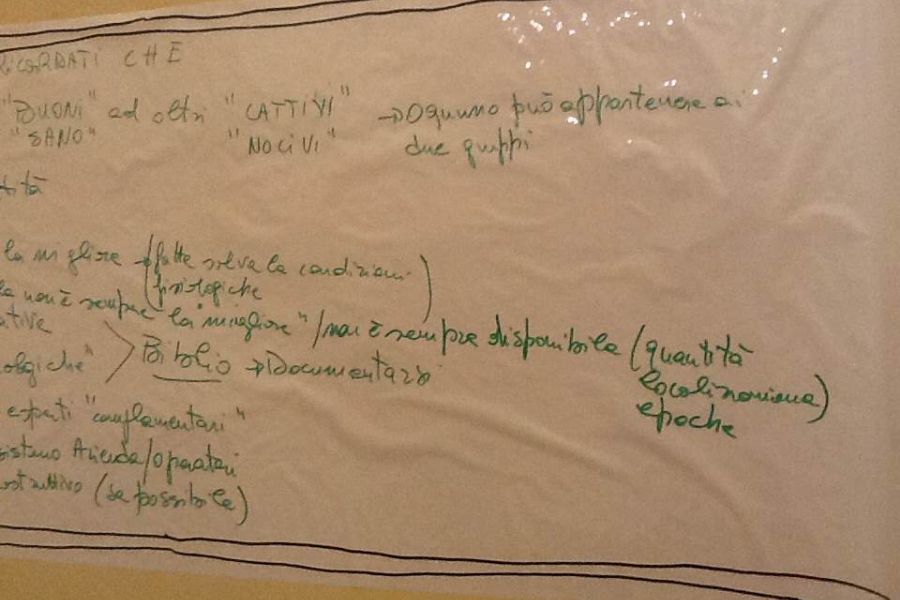 RICORDATI CHE
"BUONI" ad altri "CATTIVI" → Ognuno può appartenere ai
"SANO" "NOCIVI" due gruppi
la migliore → (fatte salve le condizioni
fisiologiche)
non è sempre "la migliore" / non è sempre disponibile (quantità
ative localizzazione)
ologiche" > Biblio → Documentarsi epoche
esperti "complementari"
sistema Azienda/operatori
(se possibile)